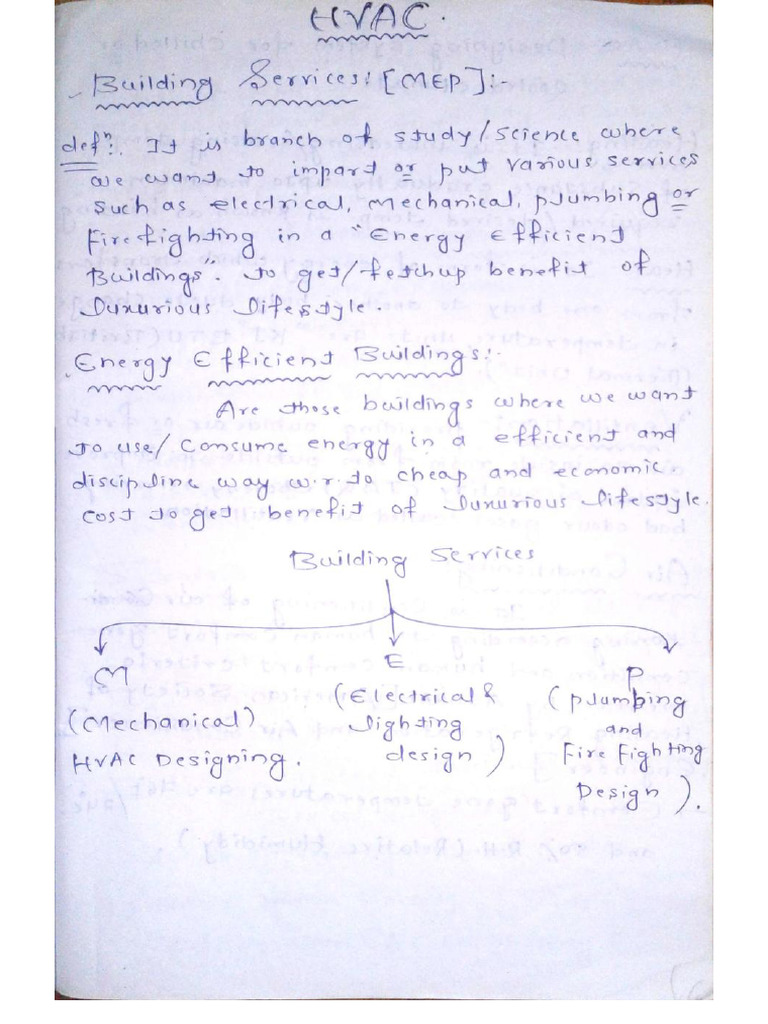 HVAC.
Building Services: [MEP]:-
defⁿ:. It is branch of study/science where
we want to impart or put various services
such as electrical, mechanical, plumbing or
fire fighting in a "Energy Efficient
Buildings. to get/fetchup benefit of
luxurious lifestyle.
Energy Efficient Buildings:-
Are those buildings where we want
to use/consume energy in a efficient and
discipline way w.r.to cheap and economic
cost to get benefit of luxurious lifestyle.
Building Services
M E P
(Mechanical) (Electrical & (plumbing
HVAC Designing. lighting and
design) Fire Fighting
Design).